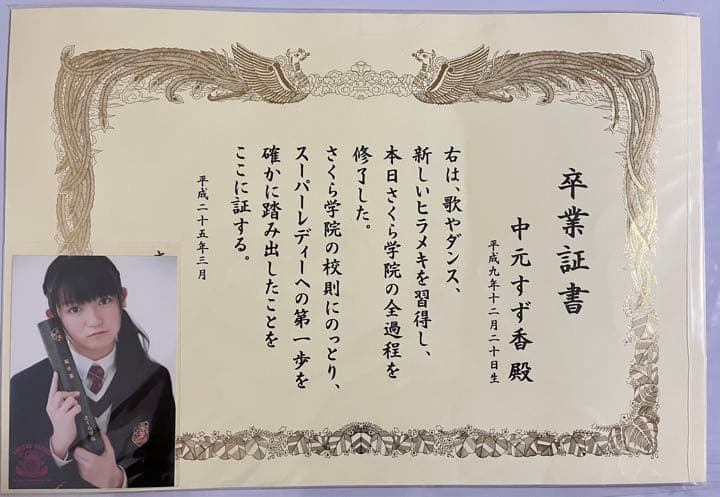 卒業証書
中元すず香殿
平成九年十二月二十日生
右は、歌やダンス、
新しいヒラメキを習得し、
本日さくら学院の全過程を
修了した。
さくら学院の校則にのっとり、
スーパーレディーへの第一歩を
確かに踏み出したことを
ここに証する。
平成二十五年三月
卒業証書
さくら学院